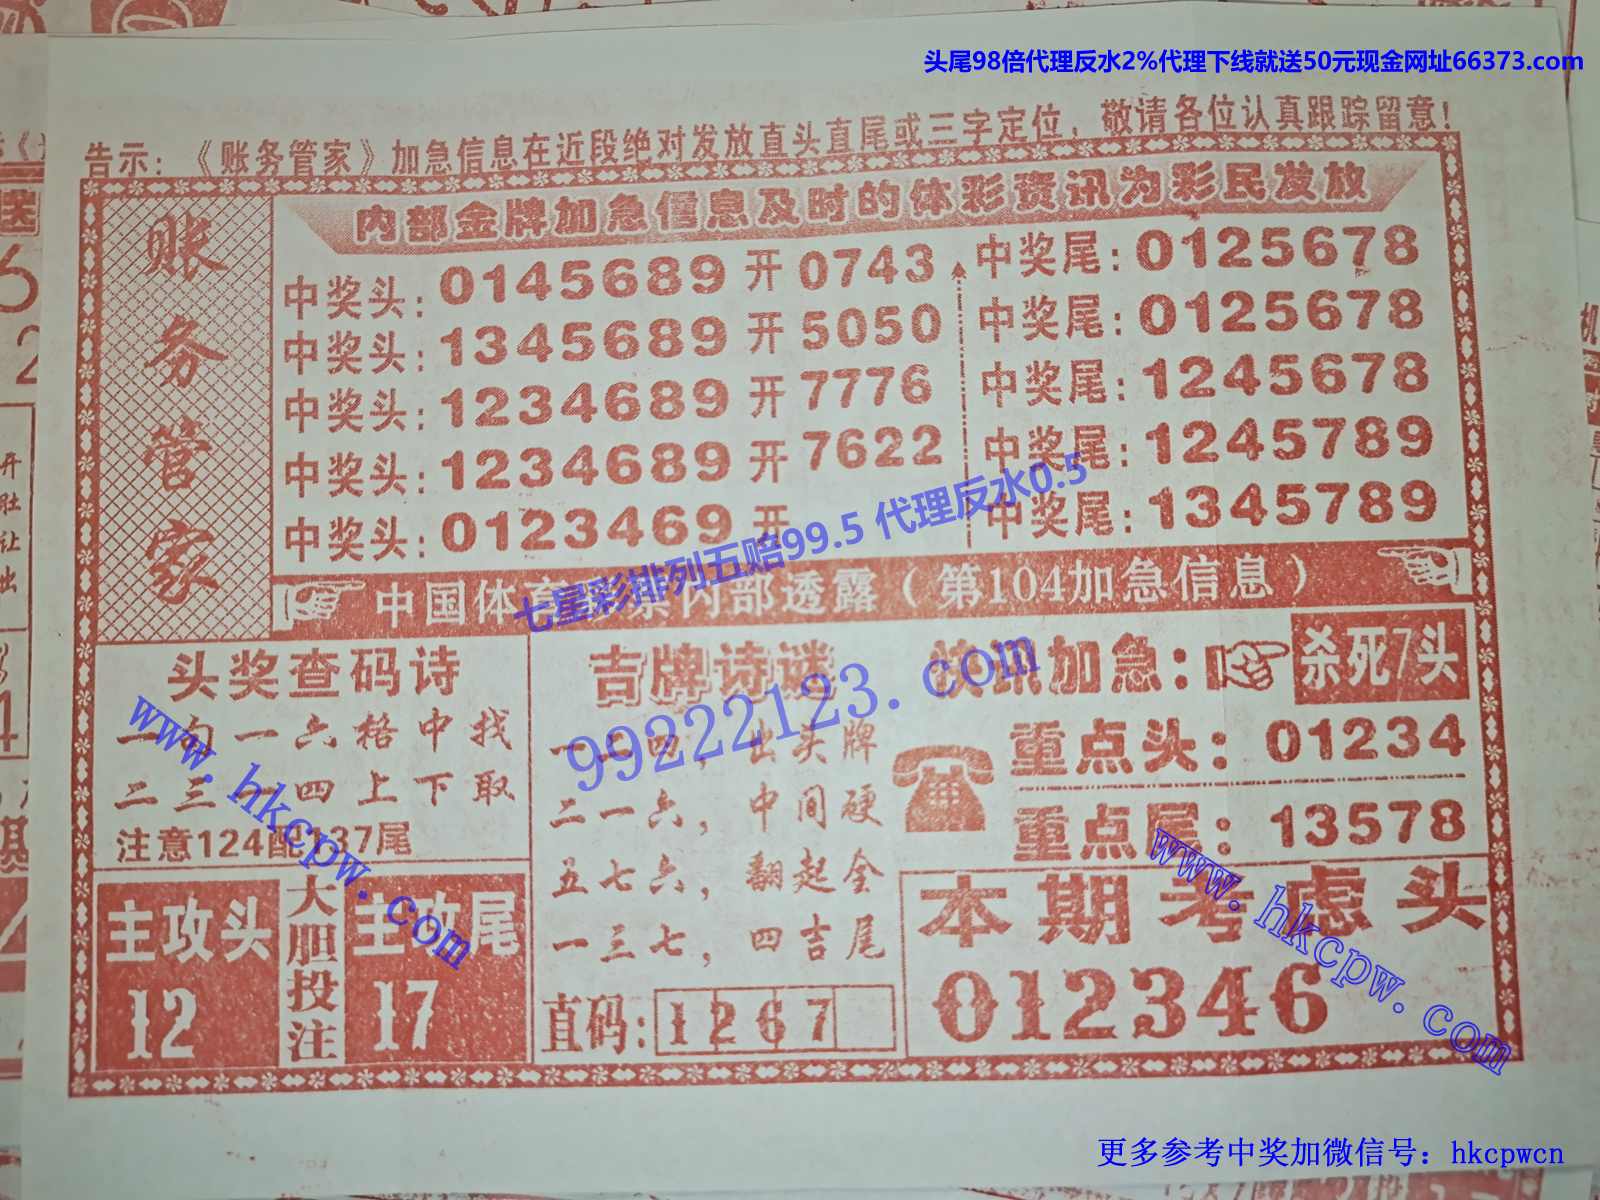 头尾98倍代理反水2%代理下线就送50元现金网址66373.com
告示：《账务管家》加急信息在近段绝对发放直头直尾或三字定位，敬请各位认真跟踪留意！
账务管家
内部金牌加急信息及时的体彩资讯为彩民发放
中奖头：0145689 开 0743 中奖尾：0125678
中奖头：1345689 开 5050 中奖尾：0125678
中奖头：1234689 开 7776 中奖尾：1245678
中奖头：1234689 开 7622 中奖尾：1245789
中奖头：0123469 开 中奖尾：1345789
七星彩排列五赔99.5 代理反水0.5
中国体育彩票内部透露（第104加急信息）
头奖查码诗
一旬一六格中找
二三一四上下取
注意124配137尾
主攻头
12
大胆投注
主攻尾
17
吉牌诗谜
一二四，出头牌
二一六，中间硬
五七六，翻起全
一三七，四吉尾
直码：1267
快讯加急：杀死7头
重点头：01234
重点尾：13578
本期考虑头
012346
99222123.com
www.hkcpw.com
www.hkcpw.com
更多参考中奖加微信号：hkcpwcn